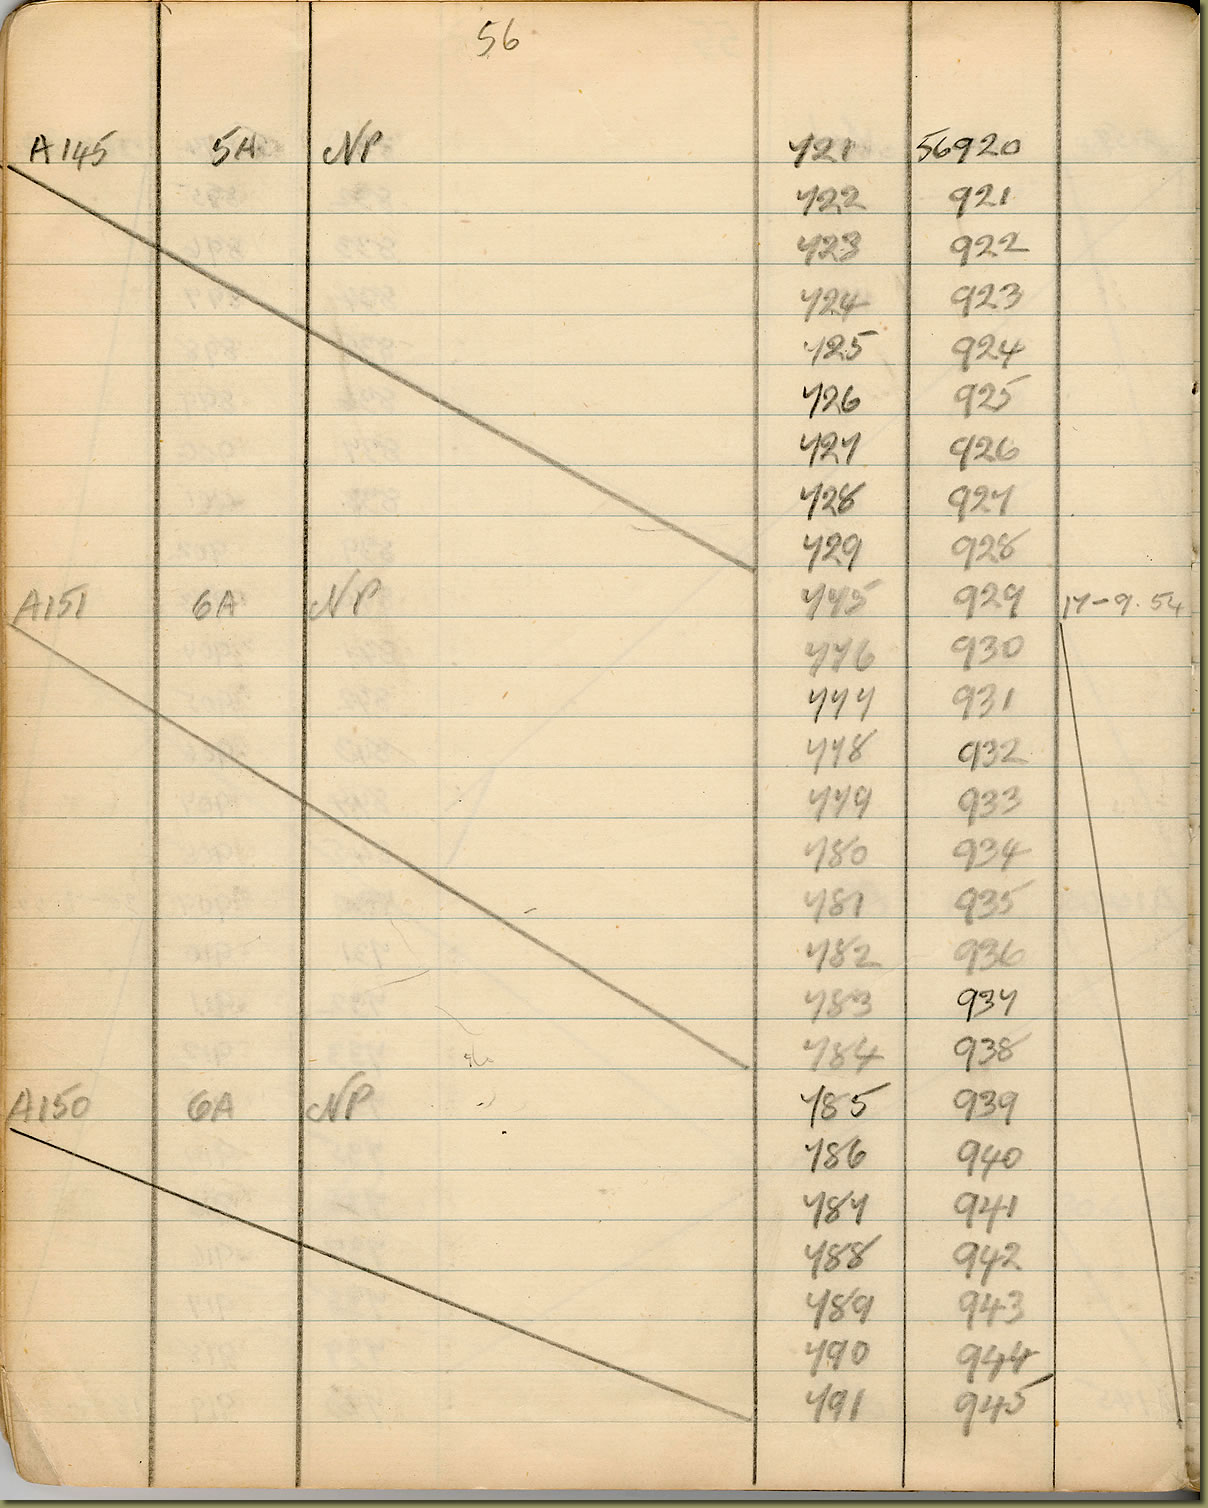 56
A145 5A NP 721 56920
722 921
723 922
724 923
725 924
726 925
727 926
728 927
729 928
A151 6A NP 775 929 17-9.54
776 930
777 931
778 932
779 933
780 934
781 935
782 936
783 937
784 938
A150 6A NP 785 939
786 940
787 941
788 942
789 943
790 944
791 945